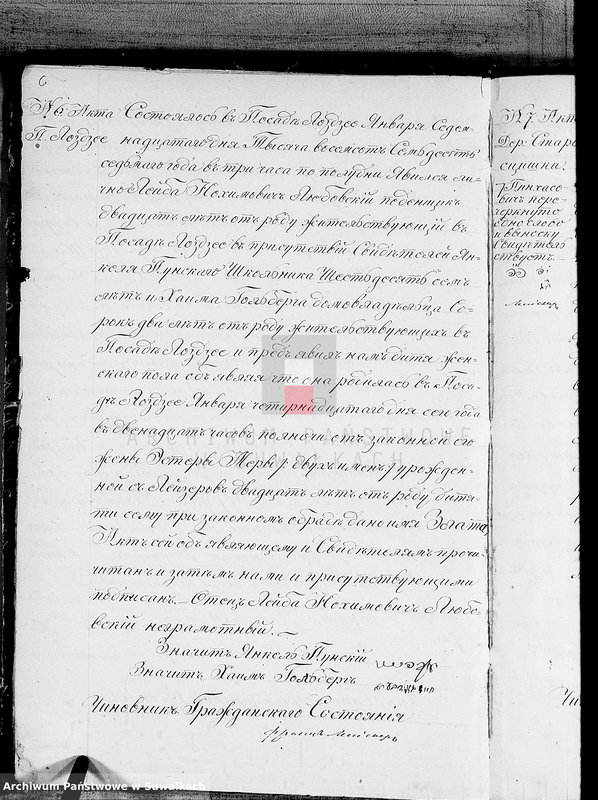 6
№ 6 Акта Состоялось въ Посадѣ Лоздзее Января Семь-
П. Лоздзее надцатаго дня Тысяча восемсотъ Семьдесятъ
седьмаго года въ три часа по полудни Явился ли-
чно Лейба Нохимовичъ Любовскій поденщикъ
двадцать лѣтъ отъ роду жительствующій въ
Посадѣ Лоздзее въ присутствіи Свидѣтелей Ян-
келя Пунскаго Школьника Шестьдесятъ семь
лѣтъ и Хаима Гольберга домовладѣльца Со-
рокъ два лѣтъ отъ роду жительствующихъ въ
Посадѣ Лоздзее и предъявилъ намъ дитя жен-
скаго пола объявляя что она родилась въ Поса-
дѣ Лоздзее Января четырнадцатаго дня сего года
въ двенадцать часовъ полночи отъ законной его
жены Эстеры Меры /: двухъ именъ / урожден-
ной съ Лейзеровъ двадцать лѣтъ отъ роду дитя-
ти сему при законномъ обрядѣ дано имя Злата,
Актъ сей объявляющему и Свидѣтелямъ прочи-
читанъ и затѣмъ нами и присутствующими
подписанъ. Отецъ Лейба Нохимовичъ Любо-
вскій неграмотный. —
Значитъ Янкель Пунскій
Значитъ Хаимъ Гольбергъ
Чиновникъ Гражданскаго Состоянія
№ 7 Акт
Дер: Старо
сцишки.
7 Пинхасо-
вичъ пере-
черкнуто
выноску
Свидѣтель
ствуетъ. —
ARCHIWUM PAŃSTWOWE
W SUWAŁKACH
Archiwum Państwowe w Suwałkach